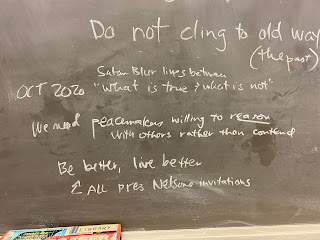 Do not cling to old way
(the past)
Satan Blur lines between
OCT 2020 "what is true & what is not"
We need peacemakers willing to reason
with others rather than contend
Be better, live better
& ALL pres Nelsons invitations
LIBRARY